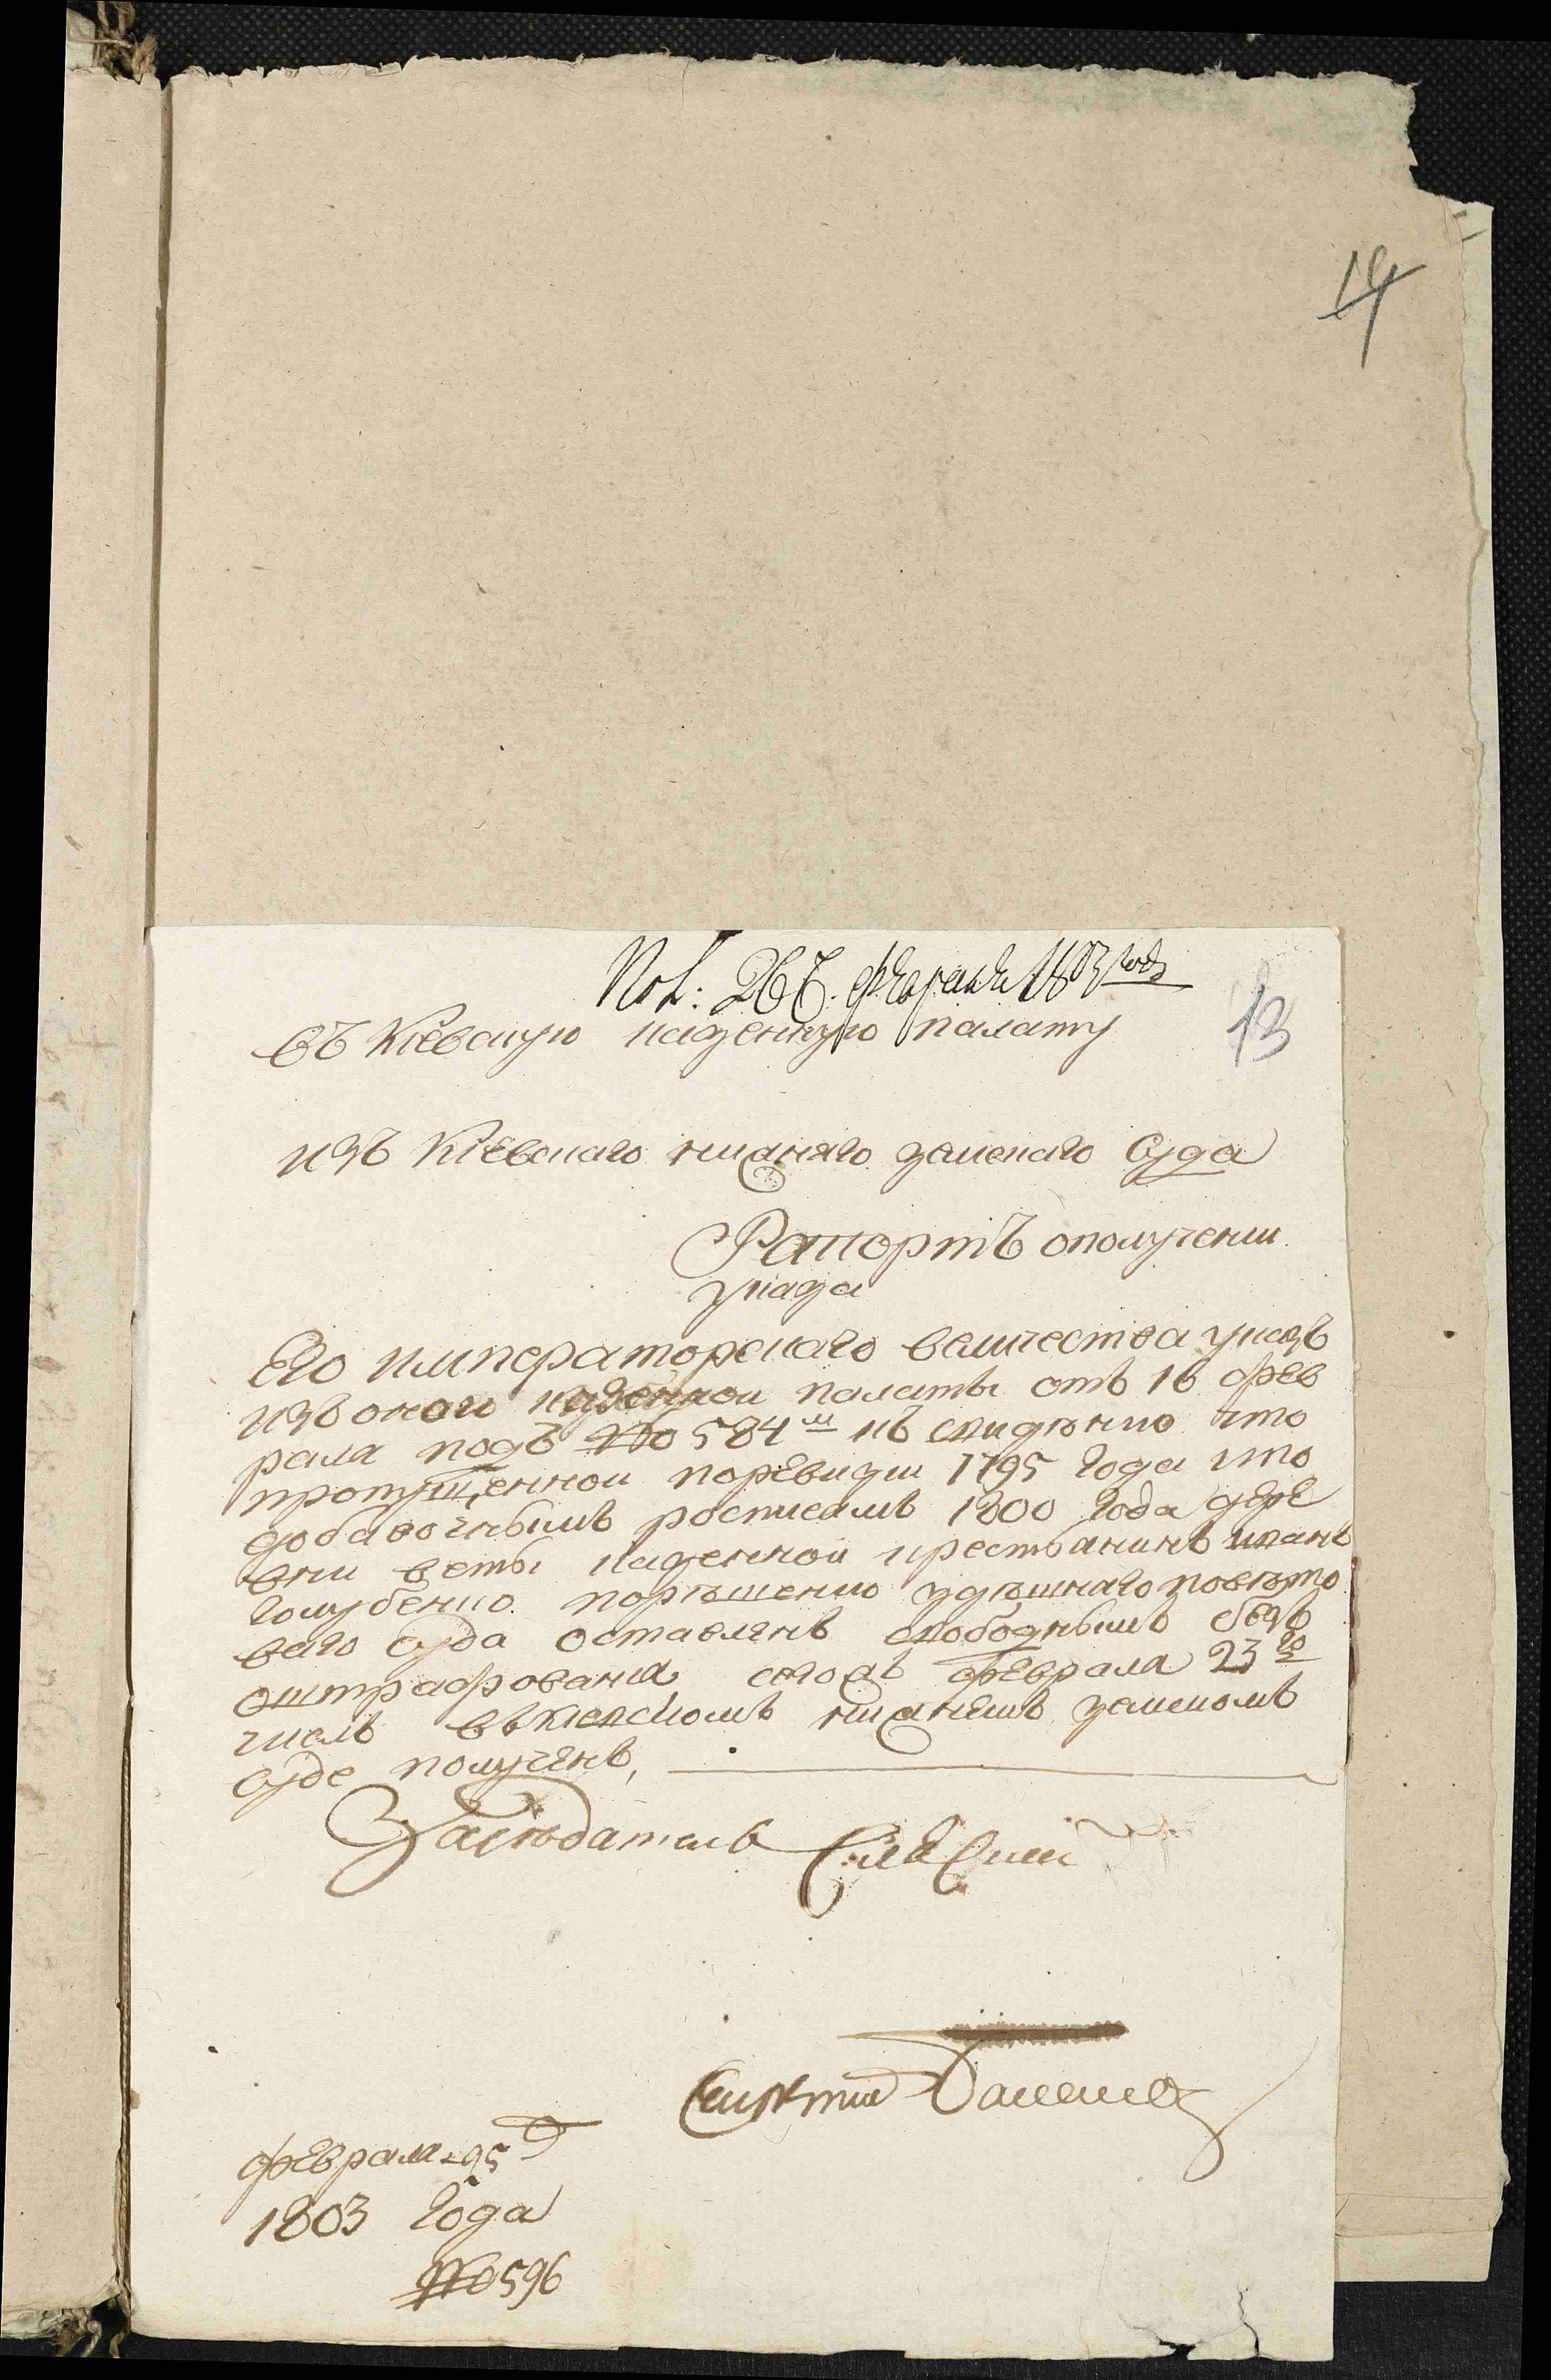 14
Пол: 26 Февраля 1803 года
13
Въ Кіевскую казенную палату
изъ Кіевскаго нижняго земскаго Суда
Рапортъ ополучении
указа
Его императорскаго величества указъ
изъ оной казенной палаты отъ 16 фев
раля подъ № 584м къ сведѣнию что
пропущенной поревизии 1795 года ипо
добавочнымъ росписамъ 1800 года дере
вни веты казенной крестьянинъ иванъ
голубенко порѣшению здѣшняго повѣто
ваго Суда оставленъ свободнымъ безъ
оштрафования сегожъ февраля 23го
числѣ вькиевскомъ нижнемъ земскомъ
Суде полученъ,
Засѣдатель
февраля 25 д
1803 года
№ 596